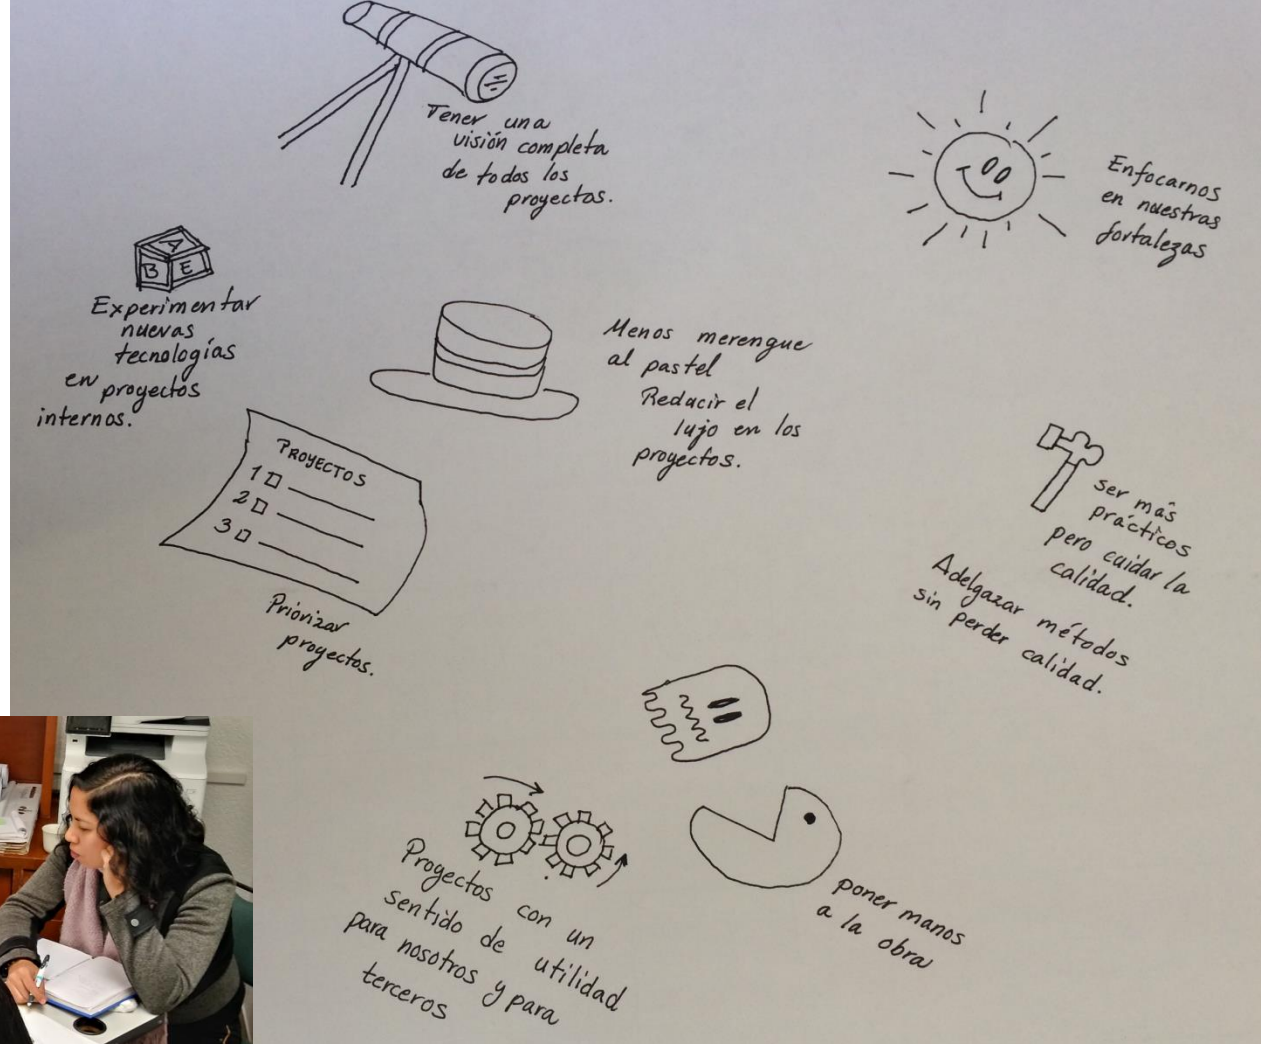 Tener una
visión completa
de todos los
proyectos.
Enfocarnos
en nuestras
fortalezas
A
B E
Experimentar
nuevas
tecnologías
en proyectos
internos.
Menos merengue
al pastel
Reducir el
lujo en los
proyectos.
PROYECTOS
1
2
3
Priorizar
proyectos.
ser más
prácticos
pero cuidar la
calidad.
Adelgazar métodos
sin perder calidad.
Proyectos con un
sentido de utilidad
para nosotros y para
terceros
poner manos
a la obra